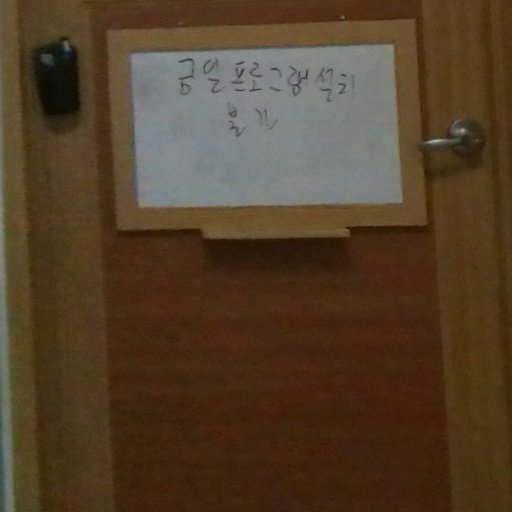 금일 프로그램 설치
불가